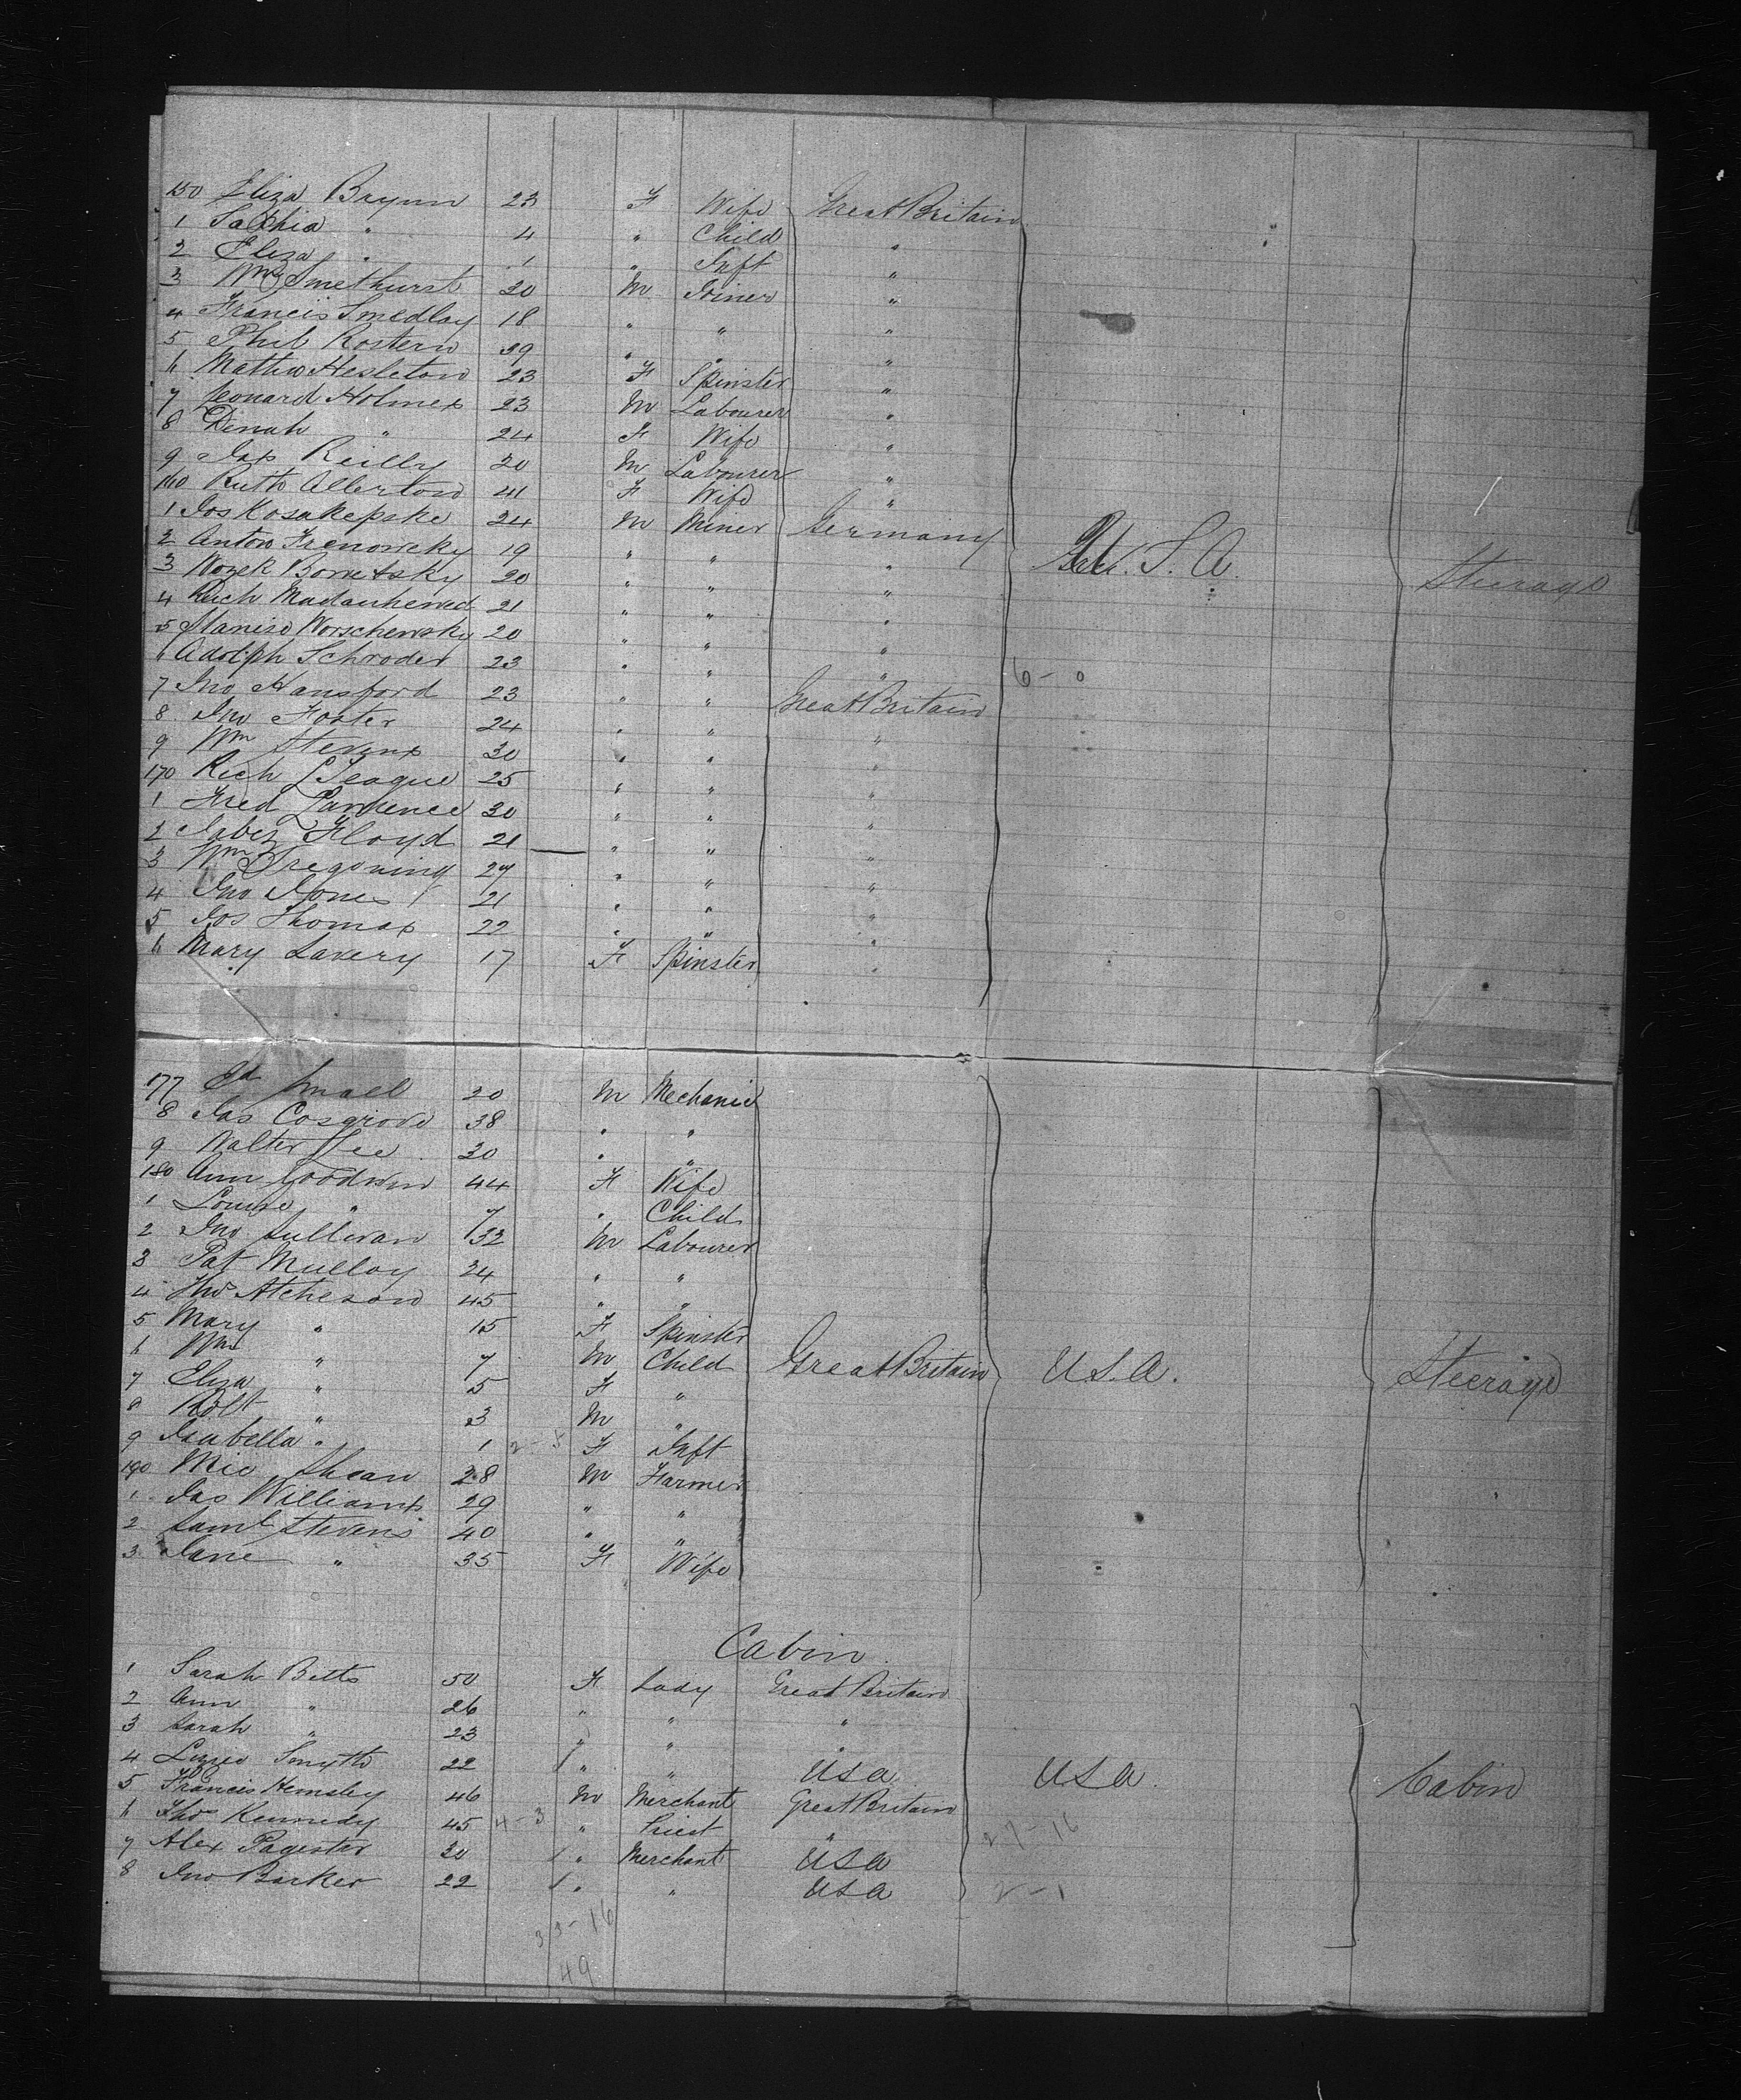 150 Eliza Brynn 23 F Wife Great Britain
1 Sophia " 4 " Child "
2 Eliza " 1 " Inft "
3 Wm Smethurst 20 M Joiner "
4 Francis Smedlay 18 " " "
5 Phil Rostern 39 " " "
6 Mattw Hesleton 23 F Spinster "
7 Leonard Holmes 23 M Labourer "
8 Dinah " 24 F Wife "
9 Jas Reilly 20 M Labourer "
160 Ruth Allerton 41 F Wife "
1 Jos Kosakepske 24 M Miner Germany
2 Anton Frenowcky 19 " " " U.S.A. Steerage
3 Wozek Bometsky 20 " " "
4 21 " " "
5 Stanisd Worschewsky 20 " " "
6 Adolph Schroder 23 " " " 6 - 0
7 Jno Hansford 23 " " Great Britain
8 Jno Foster 24 " " "
9 Wm Stevens 30 " " "
170 Rich League 25 " " "
1 Fred Lawrence 30 " " "
2 Jabez Floyd 21 — " " "
3 Wm Tregoning 27 " " "
4 Jno Jones 21 " " "
5 Jos Thomas 22 " " "
6 Mary Lavery 17 F Spinster "
177 Ed Small 20 M Mechanic
8 Jas Cosgrove 38 " "
9 Walter Lee 30 " "
180 Ann Goodwin 44 F Wife
1 Louise " 7 " Child
2 Jno Sullivan 32 M Labourer
3 Pat Mulloy 24 " "
4 Thos Atcheson 45 " "
5 Mary " 15 F Spinster
6 Wm " 7 M Child Great Britain U.S.A. Steerage
7 Eliza " 5 F "
8 Robt " 3 M "
9 Isabella " 1 2 - 5 F Inft
190 Mic Shean 28 M Farmer
1 Jas Williams 29 " "
2 Saml Stevens 40 " "
3 Jane " 35 F Wife
Cabin
1 Sarah Betts 50 F Lady Great Britain
2 Ann " 26 " " "
3 Sarah " 23 " " "
4 Lizzie Smyth 22 / " " USA USA. Cabin
5 Francis Hemsley 46 M Merchant Great Britain
6 Thos Kennedy 45 4 - 3 " Priest " 27 - 16
7 Alex 30 / " Merchant USA
8 Jno Barker 22 / " " USA 2 - 1
33 - 16
49